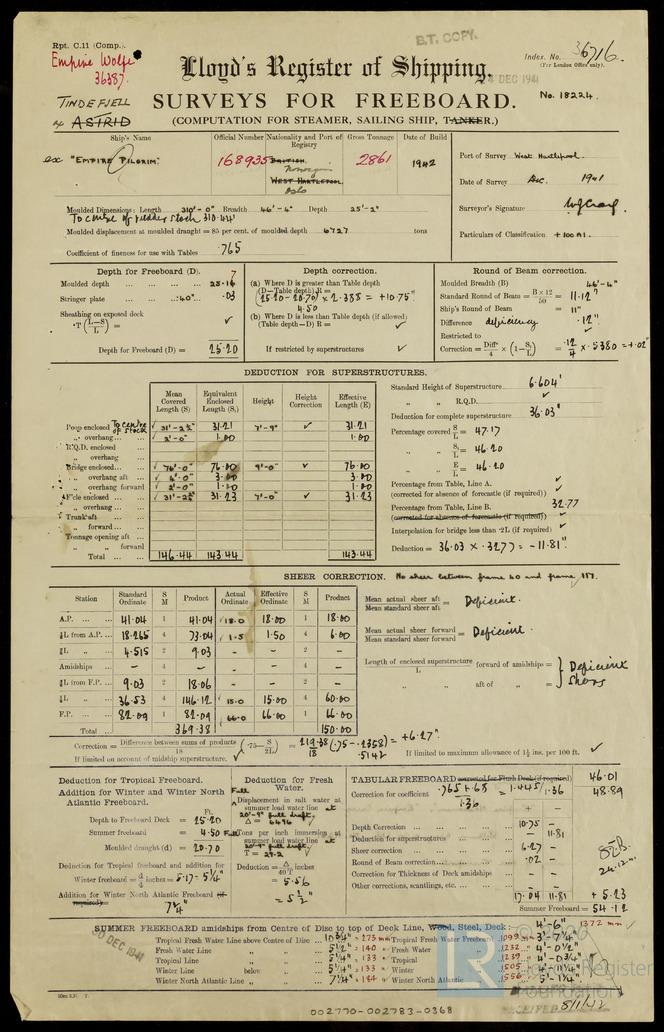 Rpt. C.11 (Comp.).
B.T. COPY.
Index. No. 36716.
(For London Office only).
Empire Wolfe
36387.
Lloyd's Register of Shipping.
DEC 1941
TINDEFJELL
SURVEYS FOR FREEBOARD.
No. 18224.
ex ASTRID
(COMPUTATION FOR STEAMER, SAILING SHIP, TANKER.)
Ship's Name
Official Number
Nationality and Port of Registry
Gross Tonnage
Date of Build
ex "EMPIRE PILGRIM."
168935
BRITISH.
Norwegian
WEST HARTLEPOOL.
Oslo
2861
1942
Port of Survey West Hartlepool.
Date of Survey Dec. 1941
Surveyor's Signature
Particulars of Classification +100 A1.
Moulded Dimensions: Length 310'-0" Breadth 46'-4" Depth 25'-2"
To centre of rudder stock 310.44'
Moulded displacement at moulded draught = 85 per cent. of moulded depth 6727 tons
Coefficient of fineness for use with Tables .765
Depth for Freeboard (D).
Moulded depth 25.16 7
Stringer plate .40" .03
Sheathing on exposed deck
T (L-S/L) = ✓
Depth for Freeboard (D) = 25.20
Depth correction.
(a) Where D is greater than Table depth
(D—Table depth) R =
(25.20-20.70) × 2.385 = +10.75"
4.50
(b) Where D is less than Table depth (if allowed)
(Table depth—D) R = ✓
If restricted by superstructures ✓
Round of Beam correction.
Moulded Breadth (B) 46'-4"
Standard Round of Beam = B × 12/50 = 11.12"
Ship's Round of Beam = 11"
Difference deficiency .12"
Restricted to
Correction = Diff/4 × (1-S₁/L) = .12/4 × .5380 = +.02"
DEDUCTION FOR SUPERSTRUCTURES.
Mean Covered Length (S)
Equivalent Enclosed Length (S₁)
Height
Height Correction
Effective Length (E)
Poop enclosed To centre of stock 31'-2½" 31.21 7'-9" ✓ 31.21
" overhang 2'-0" 1.00 1.00
R.Q.D. enclosed
" overhang
Bridge enclosed 76'-0" 76.00 9'-0" ✓ 76.00
" overhang aft 3.00 3.00
" overhang forward 2'-0" 1.00 1.00
F'cle enclosed 31'-2¾" 31.23 7'-0" ✓ 31.23
" overhang
Trunk aft
" forward
Tonnage opening aft
" " forward
Total 146.44 143.44 143.44
Standard Height of Superstructure 6.604'
" " R.Q.D. ✓
Deduction for complete superstructure 36.03"
Percentage covered S/L = 47.17
" " S₁/L = 46.20
" " E/L = 46.20
Percentage from Table, Line A. ✓
(corrected for absence of forecastle (if required)) ✓
Percentage from Table, Line B. 32.77
(corrected for absence of forecastle (if required)) ✓
Interpolation for bridge less than ·2L (if required) ✓
Deduction = 36.03 × .3277 = -11.81".
SHEER CORRECTION. No sheer between frame 60 and frame 117.
Station
Standard Ordinate
S M
Product
Actual Ordinate
Effective Ordinate
S M
Product
A.P. 41.04 1 41.04 18.0 18.00 1 18.00
⅙L from A.P. 18.265 4 73.04 1.5 1.50 4 6.00
⅓L " 4.515 2 9.03 — — 2 —
Amidships — 4 — — — 4 —
⅓L from F.P. 9.03 2 18.06 — — 2 —
⅙L " 36.53 4 146.12 15.0 15.00 4 60.00
F.P. 82.09 1 82.09 66.0 66.00 1 66.00
Total 369.38 150.00
Mean actual sheer aft / Mean standard sheer aft = Deficient.
Mean actual sheer forward / Mean standard sheer forward = Deficient.
Length of enclosed superstructure / L forward of amidships = } Deficient
aft of " = } Sheer
Correction = Difference between sums of products/18 (·75—S/2L) = 219.38/18 (.75-.2358) = +6.27".
.5142
If limited on account of midship superstructure. ✓
If limited to maximum allowance of 1½ ins. per 100 ft. ✓
Deduction for Tropical Freeboard.
Addition for Winter and Winter North Atlantic Freeboard.
Ft.
Depth to Freeboard Deck = 25.20
Summer freeboard = 4.50
Moulded draught (d) = 20.70
Deduction for Tropical freeboard and addition for
Winter freeboard = d/4 inches = 5.17 - 5¼"
Addition for Winter North Atlantic Freeboard (if required) =
7¼"
Deduction for Fresh Water.
Full
Displacement in salt water at summer load water line at
20'-9" full draft.
Δ = 6496
Full Tons per inch immersion at summer load water line at
20'-9" full draft.
T = 29.2 ✓
Deduction = Δ/40T inches
= 5.56
= 5½"
TABULAR FREEBOARD corrected for Flush Deck (if required) 46.01
Correction for coefficient .765 + .68 / 1.36 = 1.445/1.36 48.89
+ —
Depth Correction 10.75 —
Deduction for superstructures — 11.81
Sheer correction 6.27 —
Round of Beam correction .02 —
Correction for Thickness of Deck amidships — —
Other corrections, scantlings, etc. — —
17.04 11.81 + 5.23
Summer Freeboard = 54.12
24-12-41
SUMMER FREEBOARD amidships from Centre of Disc to top of Deck Line, Wood, Steel, Deck: 4'-6" 1372 mm
DEC 1941
Tropical Fresh Water Line above Centre of Disc 10¾" = 273 mm Tropical Fresh Water Freeboard 1099 3'-7¼"
Fresh Water Line " " 5½" = 140 Fresh Water " 1232 4'-0½"
Tropical Line " " 5¼" = 133 Tropical " 1239 4'-0¾"
Winter Line below " 5¼" = 133 Winter " 1505 4'-11¼"
Winter North Atlantic Line " " 7¼" = 184 Winter North Atlantic " 1556 5'-1¼"
LR
Lloyd's Register
Foundation
RECEIVED 8/1/42
002770-002783-0368